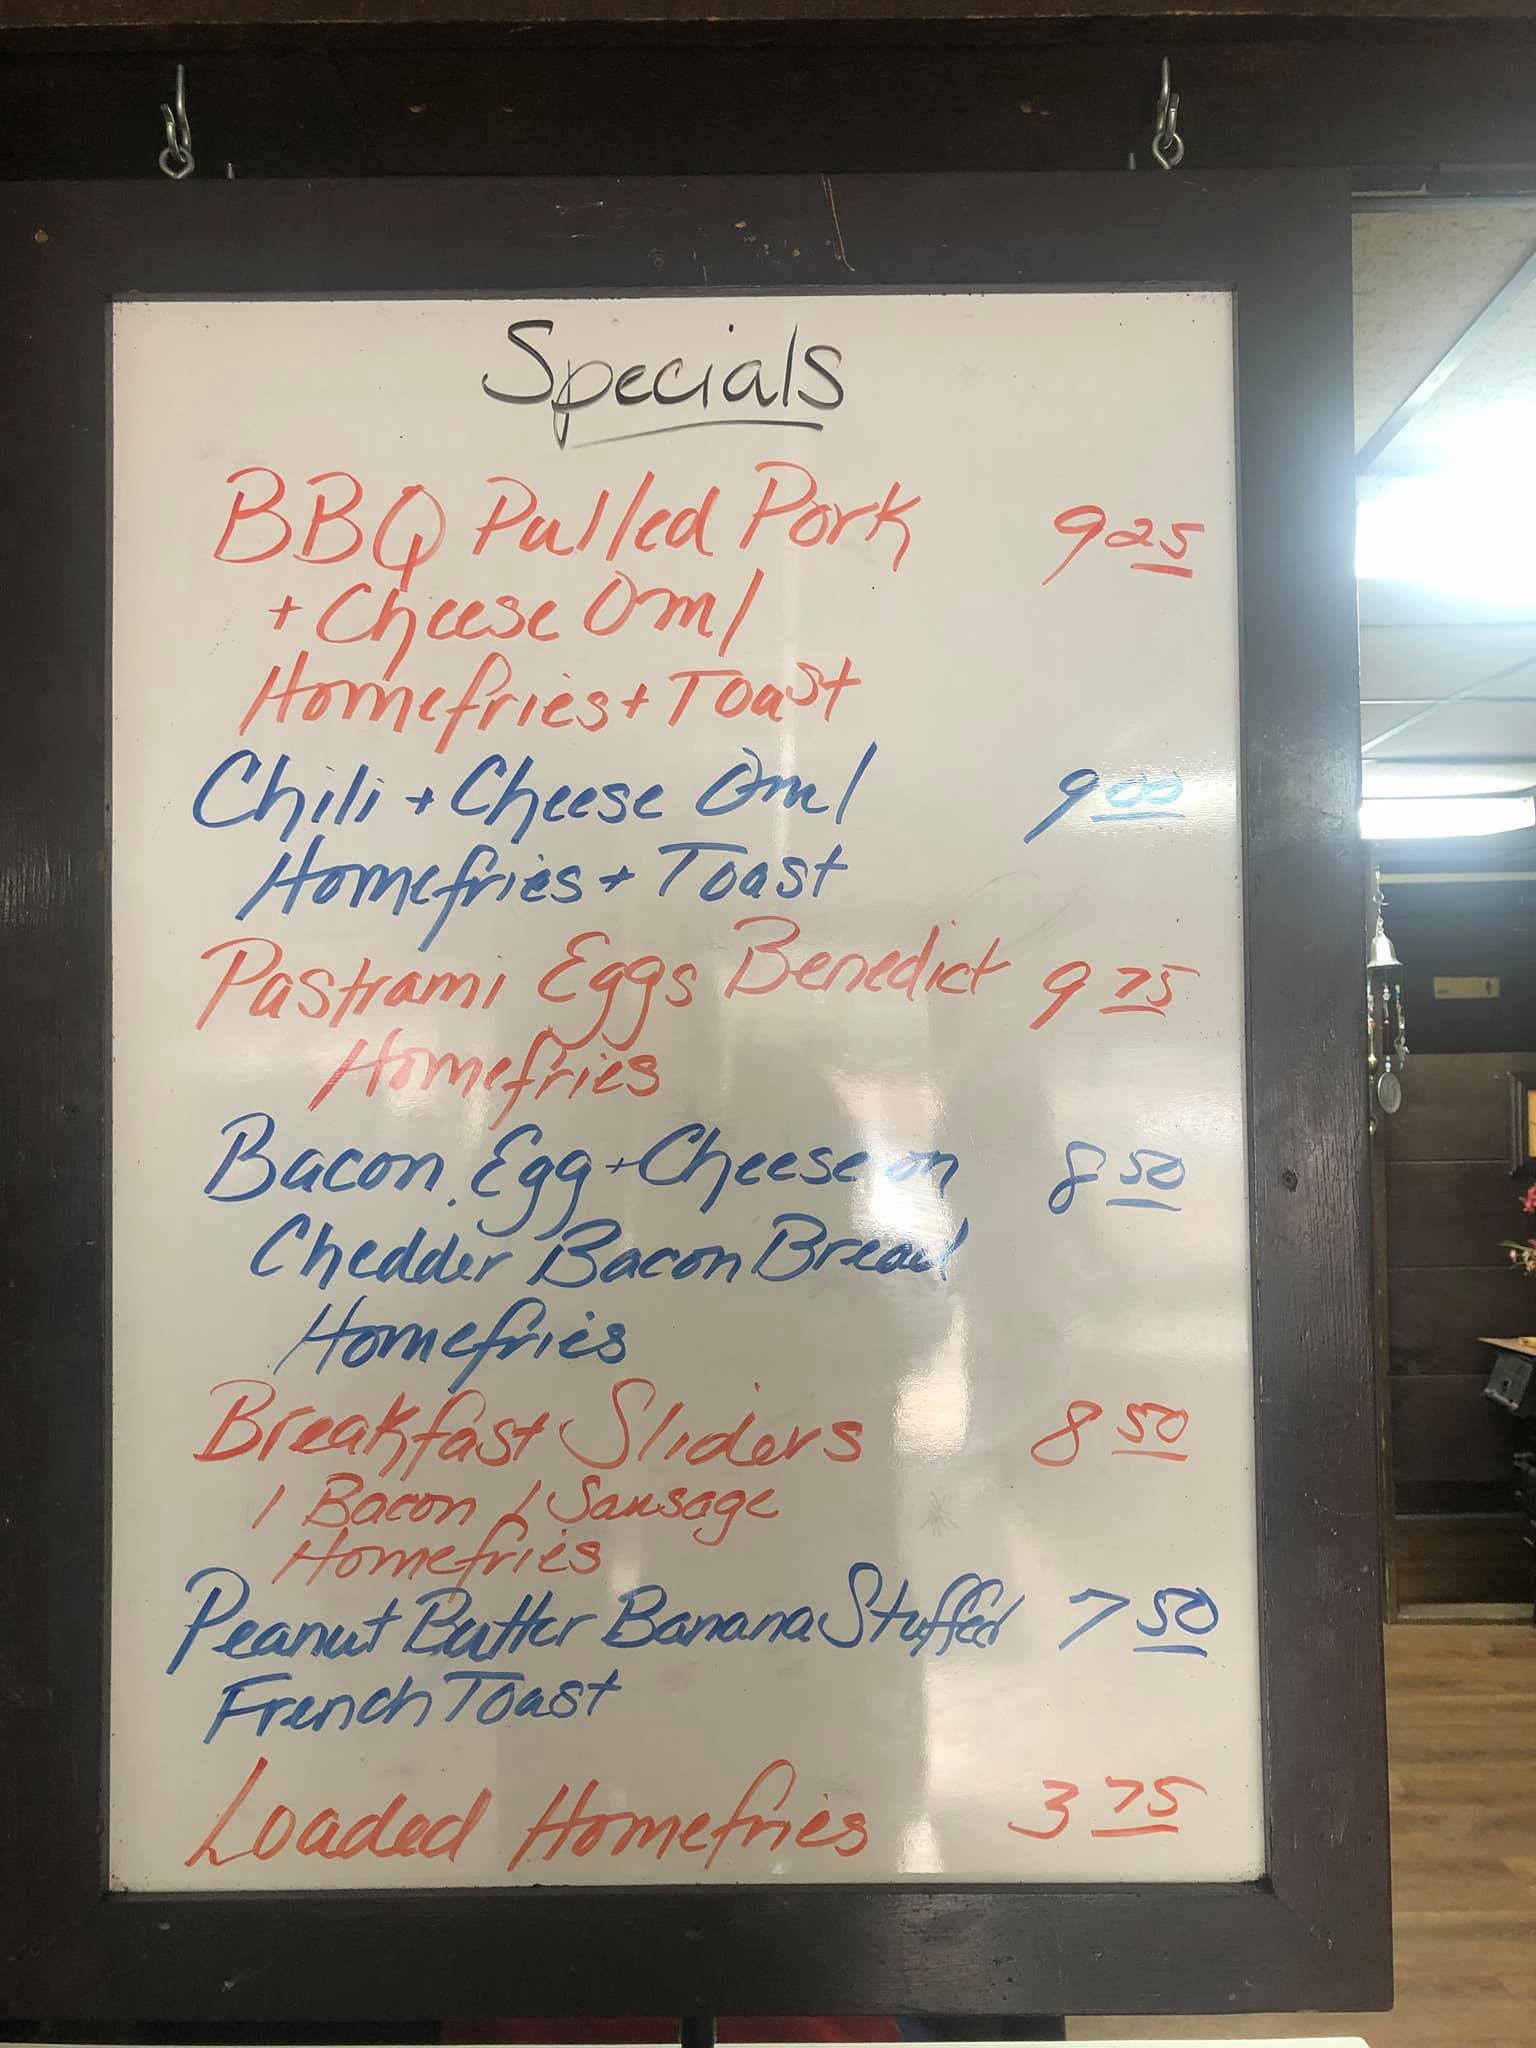 Specials
BBQ Pulled Pork 9 25
+ Cheese Oml
Homefries + Toast
Chili + Cheese Oml 9 00
Homefries + Toast
Pastrami Eggs Benedict 9 75
Homefries
Bacon, Egg + Cheese on 8 50
Chedder Bacon Bread
Homefries
Breakfast Sliders 8 50
1 Bacon 1 Sausage
Homefries
Peanut Butter Banana Stuffed 7 50
French Toast
Loaded Homefries 3 75